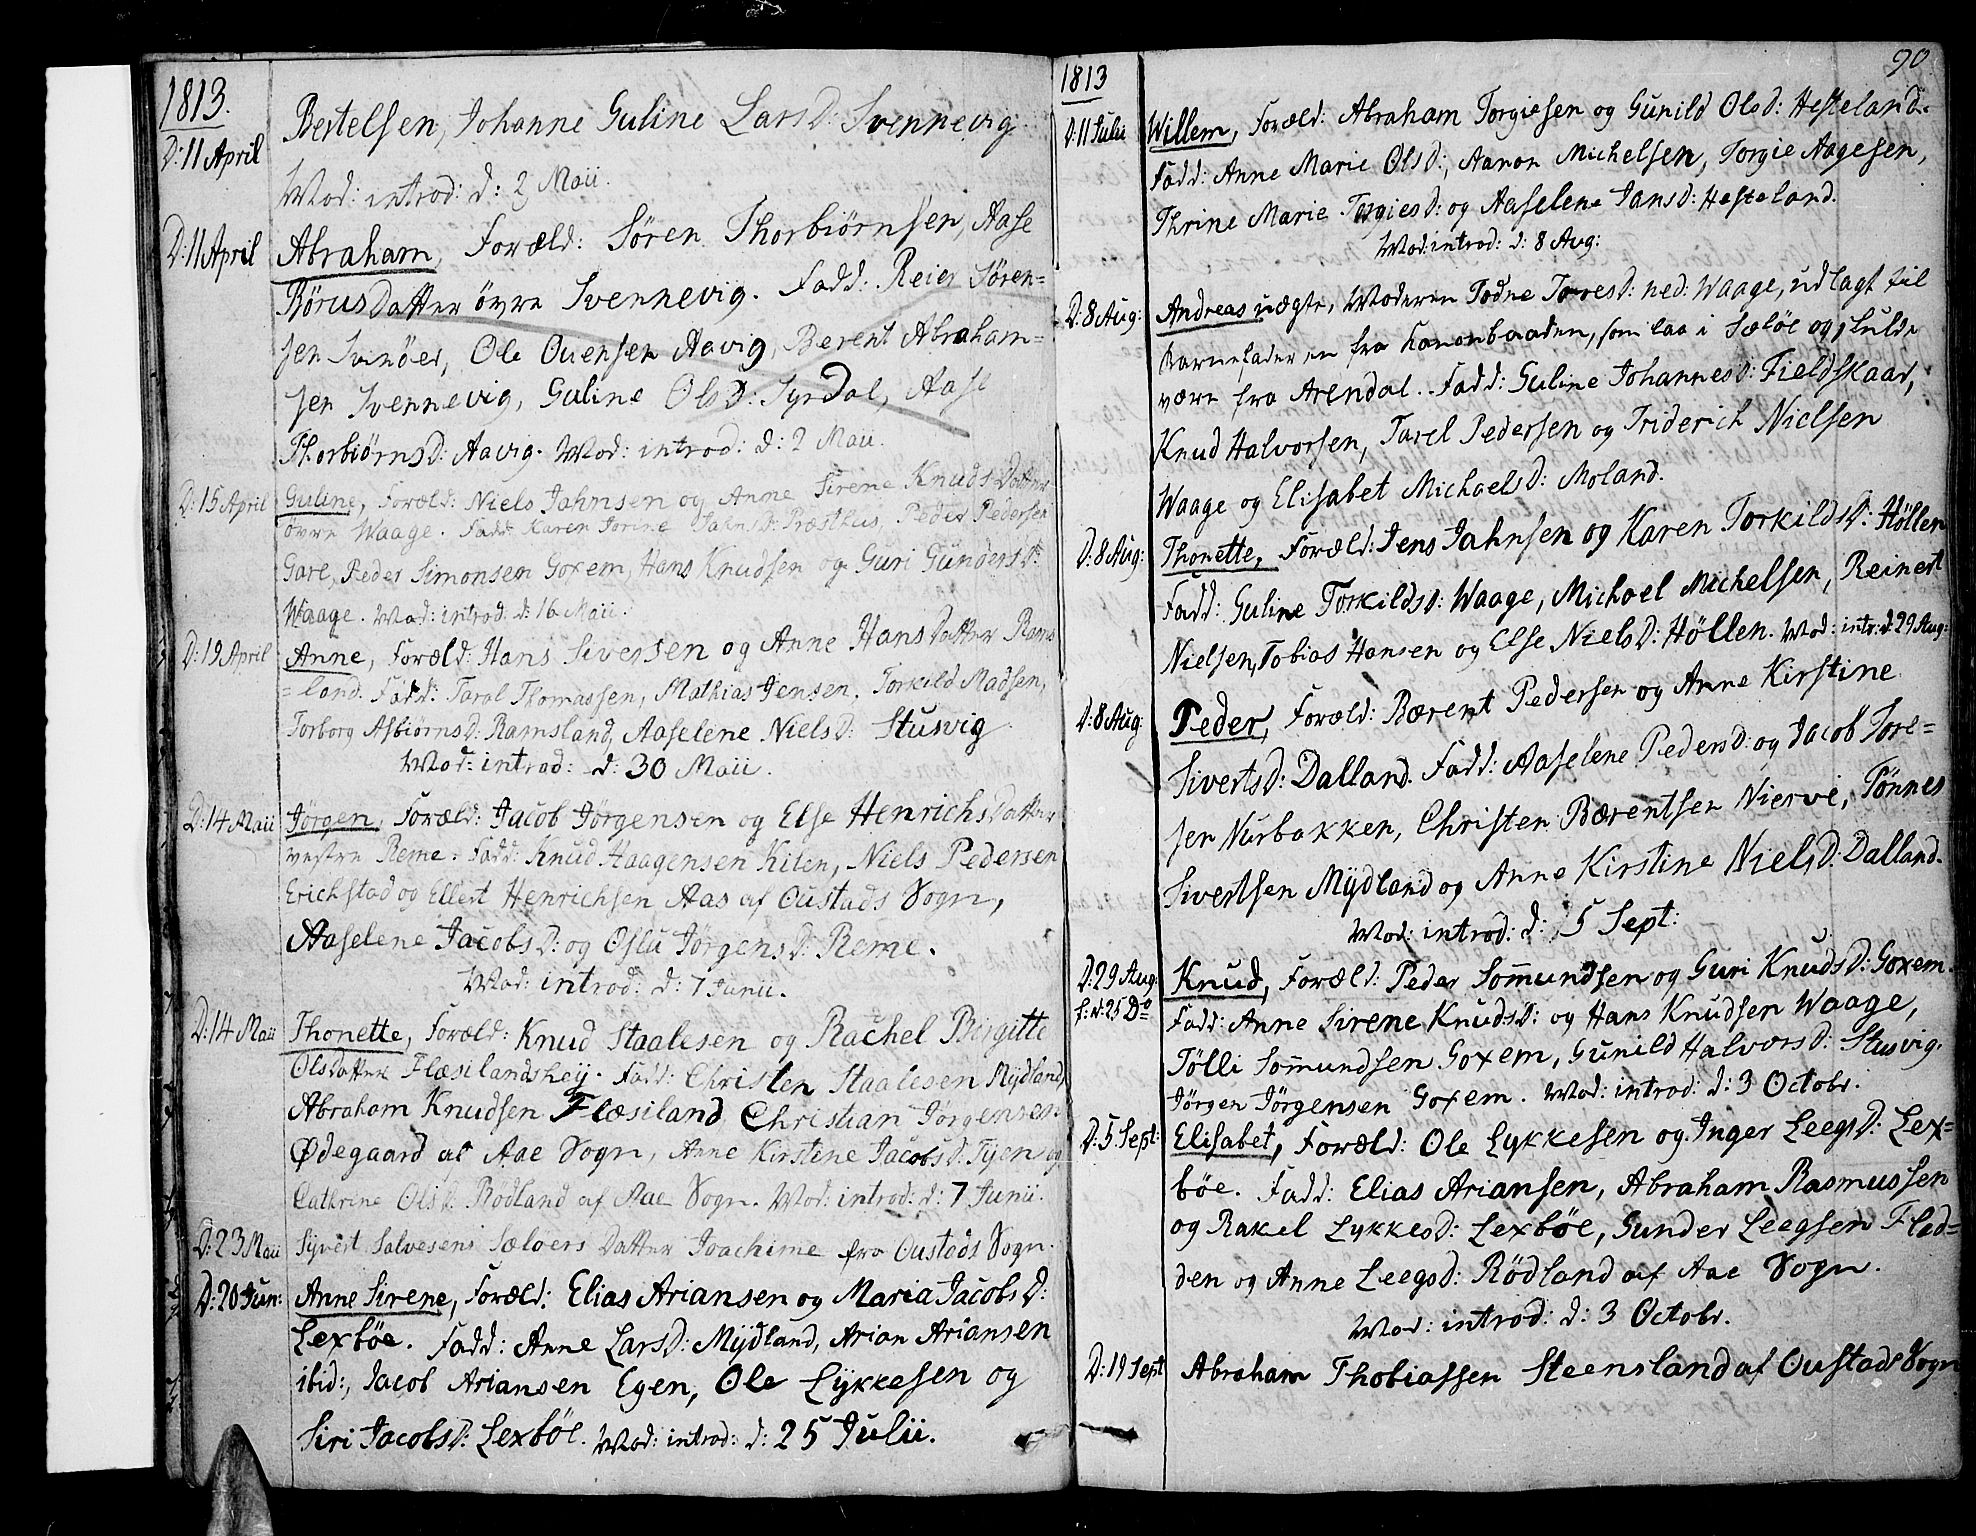 1813.
D: 11 April Bertelsen, Johanne Guline LarsD: Svennevig.
Mod: introd: d: 2 Maii.
D: 11 April Abraham, Foræld: Søren Thorbiørnsen, Aase
RørusDatter övre Svennevig. Fadd: Reier Søren=
sen Svinöer, Ole Ouensen Aavig, Berent Abraham=
sen Svennevig, Guline OlsD: Syrdal, Aase
ThorbiørnsD: Aavig. Mod: introd: d: 2 Maii.
D: 15 April Guline, Foræld: Niels Jahnsen og Anne Sirene KnudsDatter
övre Waage. Fadd: Karen Torine JahnsD: Præsthus, Peder Pedersen
Gare, Peder Simonsen Goxem, Hans Knudsen og Guri GundersD:
Waage. Mod: introd: d: 16 Maii.
D: 19 April Anne, Foræld: Hans Siversen og Anne HansDatter Rams
=land. Fadd: Tarol Thomassen, Mathias Jensen, Torkild Madsen,
Torborg AsbiørnsD: Ramsland, Aaselene NielsD: Stusvig
Mod: introd: d: 30 Maii.
D: 14 Maii Jørgen, Foræld: Jacob Jørgensen og Else HenrichsDatter
vestre Reme. Fadd: Knud Haagensen Kiten, Niels Pedersen
Erichstad og Ellert Henrichsen Aas af Oustads Sogn,
Aaselene JacobsD: og Oslu JørgensD: Reme.
Mod: introd: d: 7 Junii.
D: 14 Maii Thonette, Foræld: Knud Staalesen og Rachel Birgitte
OlsDatter Flæsilandsheij. Fadd: Christen Staalesen Mydland,
Abraham Knudsen Flæsiland, Christian Jørgensen
Ødegaard af Aae Sogn, Anne Kirstine JacobsD: Tjen og
Cathrine OlsD: Rödland af Aae Sogn. Mod: introd: d: 7 Junii.
D: 23 Maii Syvert Salvesens Sæloers Datter Joachime fra Oustads Sogn.
D: 20 Jun: Anne Sirene, Foræld: Elias Ariansen og Maria JacobsD:
Lexböe. Fadd: Anne LarsD: Mydland, Arian Ariansen
ibid:, Jacob Ariansen Egen, Ole Lykkesen og
Siri JacobsD: Lexböe. Mod: introd: d: 25 Julii.
90.
1813
D: 11 Julii Willem, Foræld: Abraham Torgiesen og Gunild OlsD: Hesteland.
Fadd: Anne Marie OlsD:, Aanon Michelsen, Torgie Aagesen,
Thrine Marie TorgiesD: og Aaselene JansD: Hesteland.
Mod: introd: d: 8 Aug:
D: 8 Aug: Andreas uægte, Moderen Todne TorresD: ned: Waage, udlagt til
barnefader en fra Kanonbaaden, som laa i Sæløe og skulde
være fra Arendal. Fadd: Guline JohannesD: Fieldskaar,
Knud Halvorsen, Tarel Pedersen og Friderich Nielsen
Waage og Elisabet MichaelsD: Moland.
D: 8 Aug: Thonette, Foræld: Jens Jahnsen og Karen TorkildsD: Höllen
Fadd: Guline TorkildsD: Waage, Michael Michelsen, Reinert
Nielsen, Tobias Hansen og Else NielsD: Höllen. Mod: intr: d: 29 Aug:
D: 8 Aug: Peder, Foræld: Bærent Pedersen og Anne Kirstine
SivertsD: Dalland. Fadd: Aaselene PedersD: og Jacob Tore=
sen Nurbakken, Christen Bærentsen Niervé, Tönnes
Sivertsen Mydland og Anne Kirstine NielsD: Dalland.
Mod: introd: d: 5 Sept:
D: 29 Aug: Knud, Foræld: Peder Som̅undsen og Guri KnudsD: Goxem.
f: d: 25 Do Fadd: Anne Sirene KnudsD: og Hans Knudsen Waage,
Tölli Som̅undsen Goxem, Gunild HalvorsD: Stusvig.
Jørgen Jørgensen Goxem. Mod: introd: d: 3 Octobr.
D: 5. Sept: Elisabet, Foræld: Ole Lykkesen og Inger LeegsD: Lex=
böe. Fadd: Elias Ariansen, Abraham Rasmussen
og Rakel LykkesD: Lexböe, Gunder Leegsen Flad=
den og Anne LeegsD: Rödland af Aae Sogn.
Mod: introd: d: 3 Octobr.
D: 19 Sept Abraham Thobiassen Steensland af Oustads Sogn